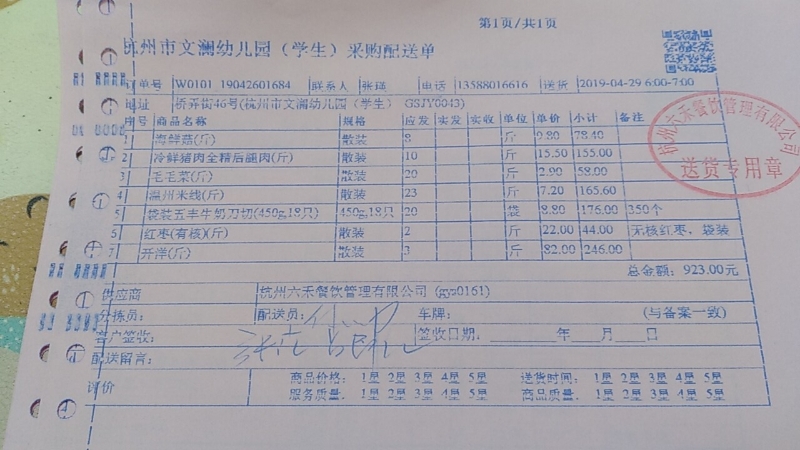 第1页/共1页
杭州市文澜幼儿园（学生）采购配送单
订单号 W0101 19042601684 联系人 张瑶 电话 13588016616 送货 2019-04-29 6:00-7:00
地址 桥弄街46号(杭州市文澜幼儿园（学生） GSJY0043)
序号 商品名称 规格 应发 实发 实收 单位 单价 小计 备注
1 海鲜菇(斤) 散装 8 斤 9.80 78.40
2 冷鲜猪肉全精后腿肉(斤) 散装 10 斤 15.50 155.00
3 毛毛菜(斤) 散装 20 斤 2.90 58.00
4 温州米线(斤) 散装 23 斤 7.20 165.60
5 袋装五丰牛奶刀切(450g,18只) 450g,18只 20 袋 8.80 176.00 350个
6 红枣(有核)(斤) 散装 2 斤 22.00 44.00 无核红枣，袋装
7 开洋(斤) 散装 3 斤 82.00 246.00
总金额：923.00元
供应商 杭州六禾餐饮管理有限公司 (gyz0161)
分拣员： 配送员： 车牌： (与备案一致)
客户签收： 签收日期： 年 月 日
配送留言：
评价 商品价格： 1星 2星 3星 4星 5星 送货时间： 1星 2星 3星 4星 5星
服务质量： 1星 2星 3星 4星 5星 商品质量： 1星 2星 3星 4星 5星
杭州六禾餐饮管理有限公司
送货专用章